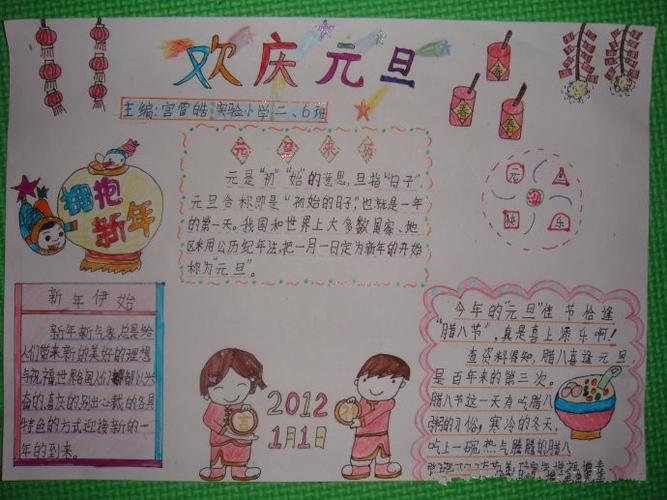 欢庆元旦
主编:宫雪皓 实验小学二、6班
春
春
拥抱
新年
元旦来历
元是“初”“始”的意思,旦指“日子”
元旦合称即是“初始的日子”,也就是一年
的第一天。我国和世界上大多数国家、地
区采用公历纪年法,把一月一日定为新年的开始
称为“元旦”。
元
旦
快
乐
新年伊始
新年新气象总是给
人们带来新的美好的理想
与祝福世界各国人们都以兴
奋的、喜庆的、别出心裁的各具
特色的方式迎接新的一
年的到来。
吉
2012
1月1日
今年的“元旦”佳节恰逢
“腊八节”,真是喜上添乐啊!
查资料得知,腊八喜逢元旦,
是百年来的第三次。
腊八节这一天有吃腊八
粥的习俗,寒冷的冬天,
吃上一碗热气腾腾的腊八